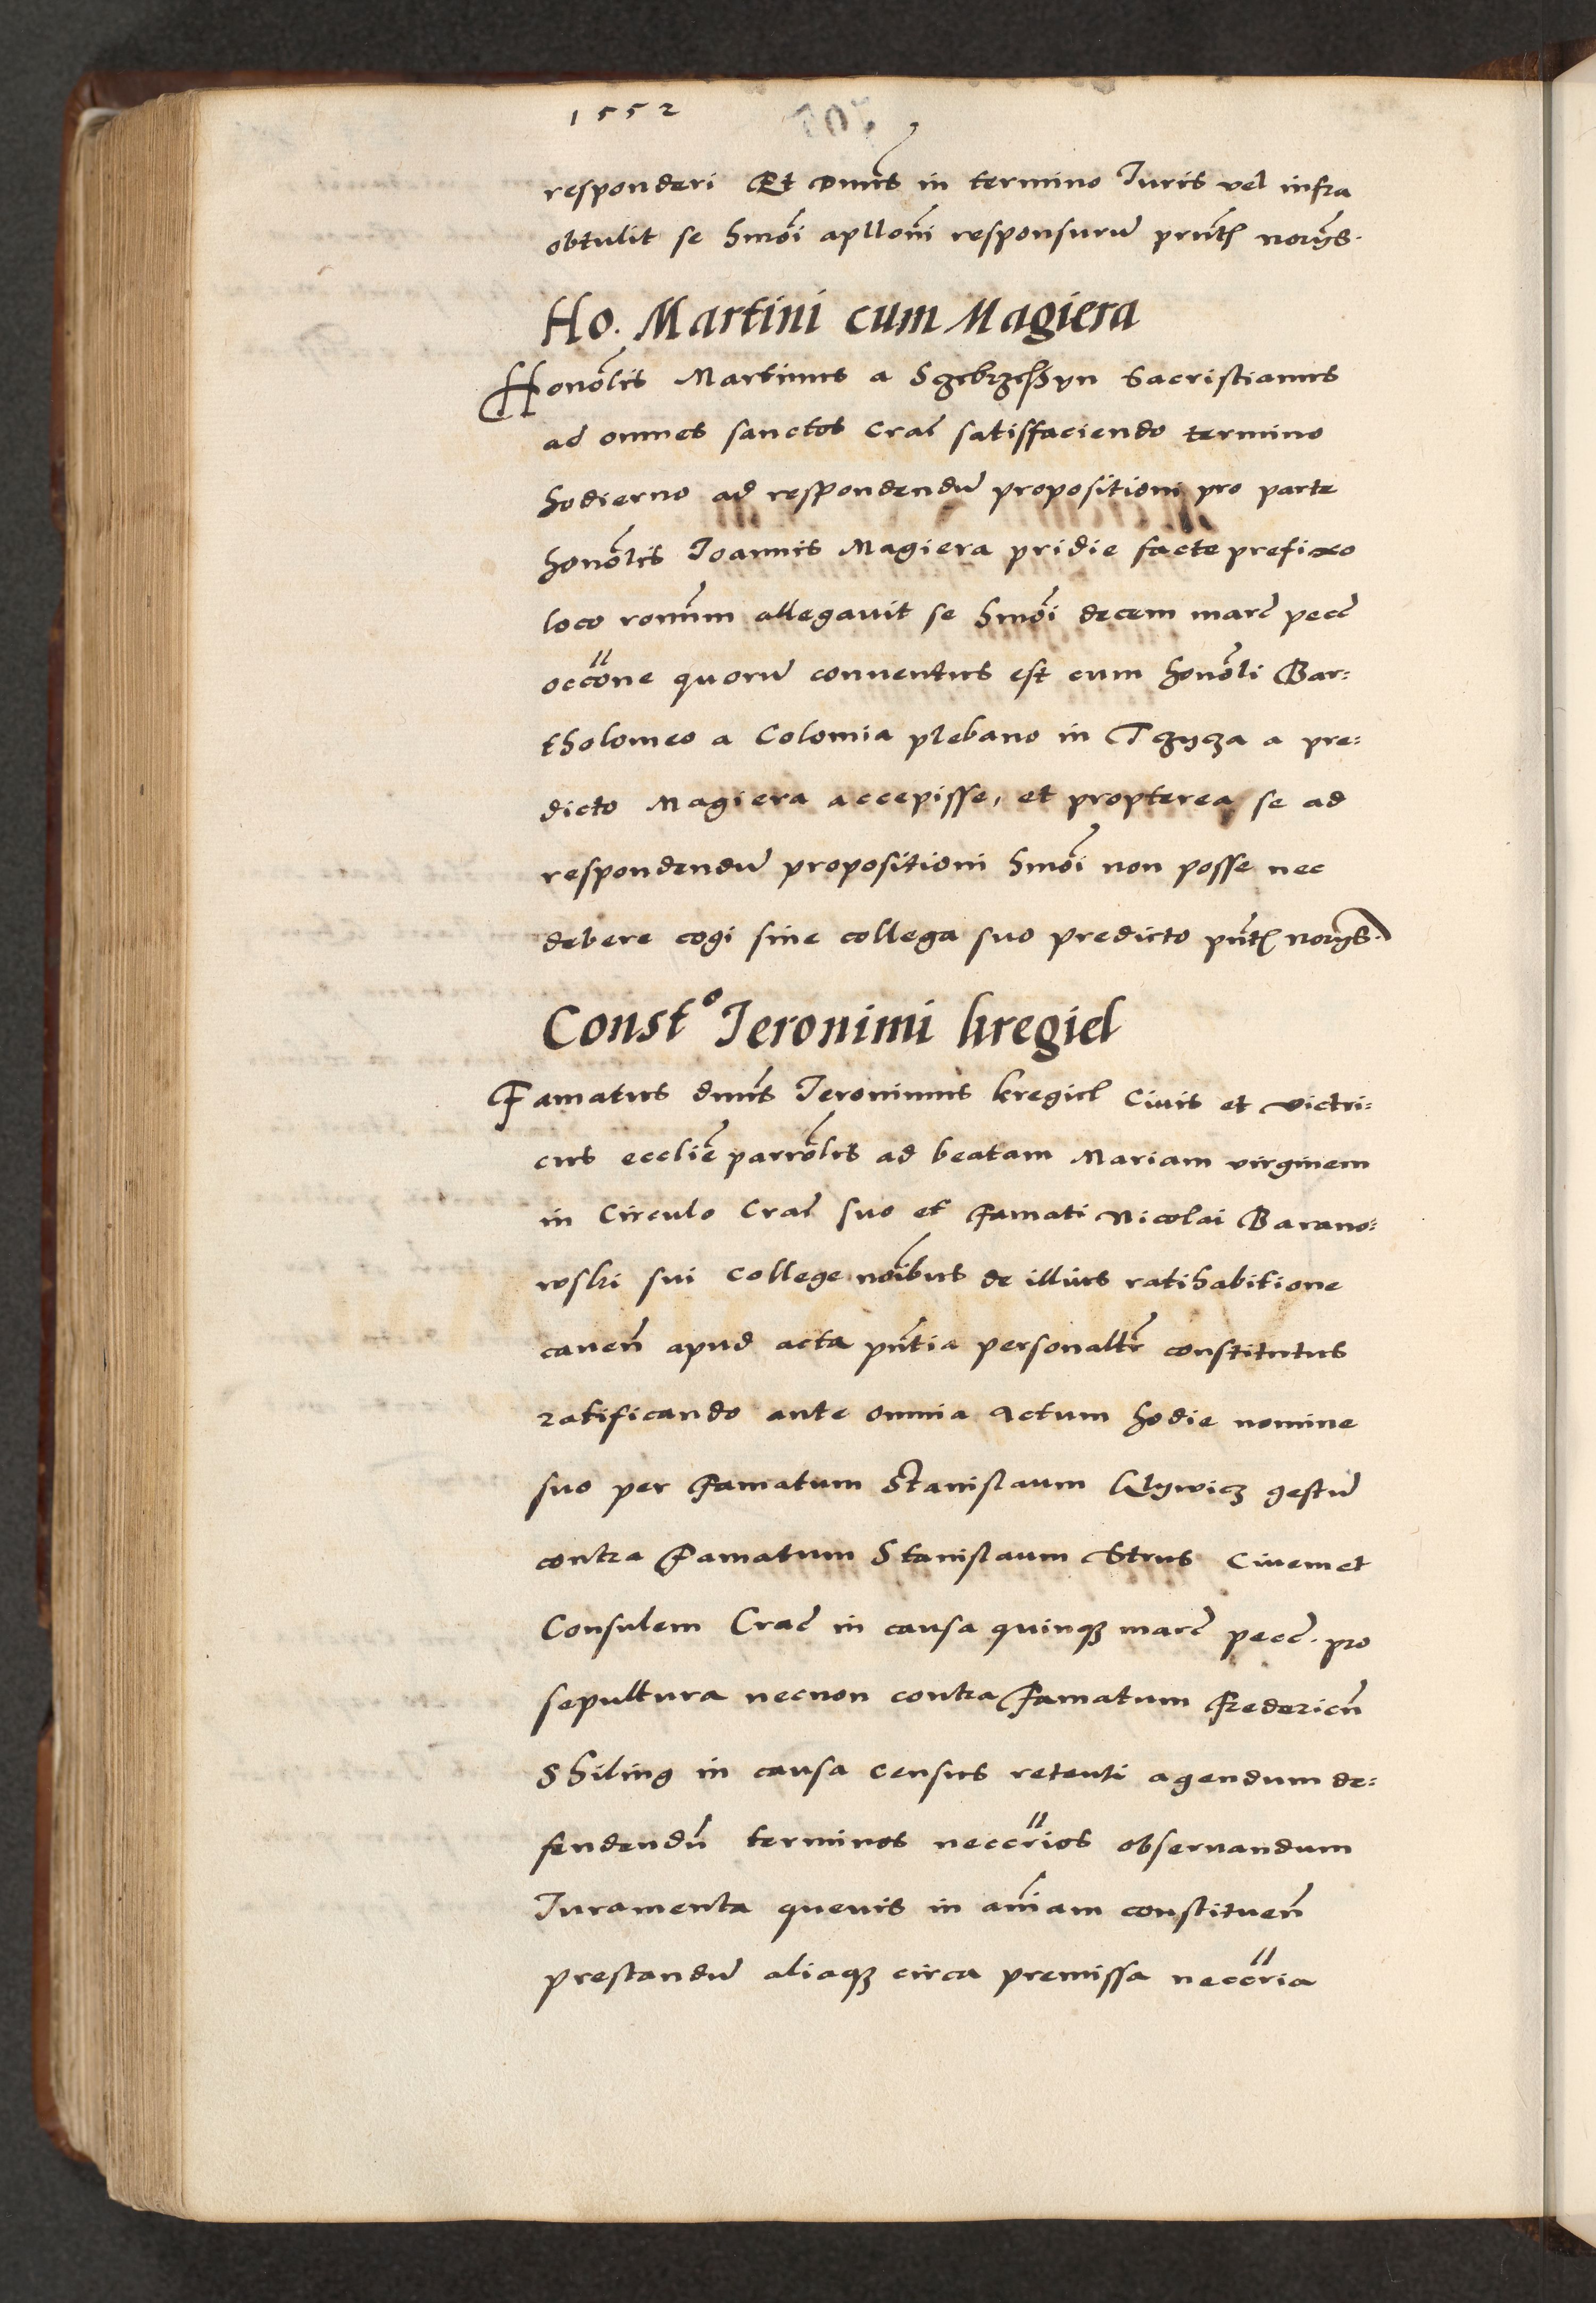 1552
responderi Et Dnus in termino Juris vel infra
obtulit se hmoi apllonni responsurum prntb norijs.
Ho. Martini cum Magiera
Honolis Martinus a Sczebrzeschyn Sacristianus
ad omnes sanctos Crac satisfaciendo termino
hodierno ad respondendum propositioni pro parte
honolis Joannis Magiera pridie facte prefixo
loco ronum allegavit se hmoi decem marc pecc
occone quorum conventus est cum honoli Bar:
tholomeo a Colomia plebano in Tczycza a pre:
dicto Magiera accepisse, et propterea se ad
respondendum propositioni hmoi non posse nec
debere cogi sine collega suo predicto pntb norijs.
Constº Jeronimi kregiel
Famatus dnus Jeronimus kregiel Civis et victri:
cus ecclie parrolis ad beatam Mariam virginem
in Circulo Crac suo et famati Nicolai Barano:
wski sui College noibus de illius ratihabitione
caven apud acta pntia personaltr constitutus
ratificando ante omnia Actum hodie nomine
suo per Famatum Stanislaum Qlywicz gestum
contra Famatum Stanislaum Strus Civem et
Consulem Crac in causa quinqz marc pecc. pro
sepultura necnon contra Famatum Fredericum
Shiling in causa census retenti agendum de:
fendendum terminos neccrios observandum
Juramenta quevis in aniam constituen
prestandum aliaqz circa premissa neccria